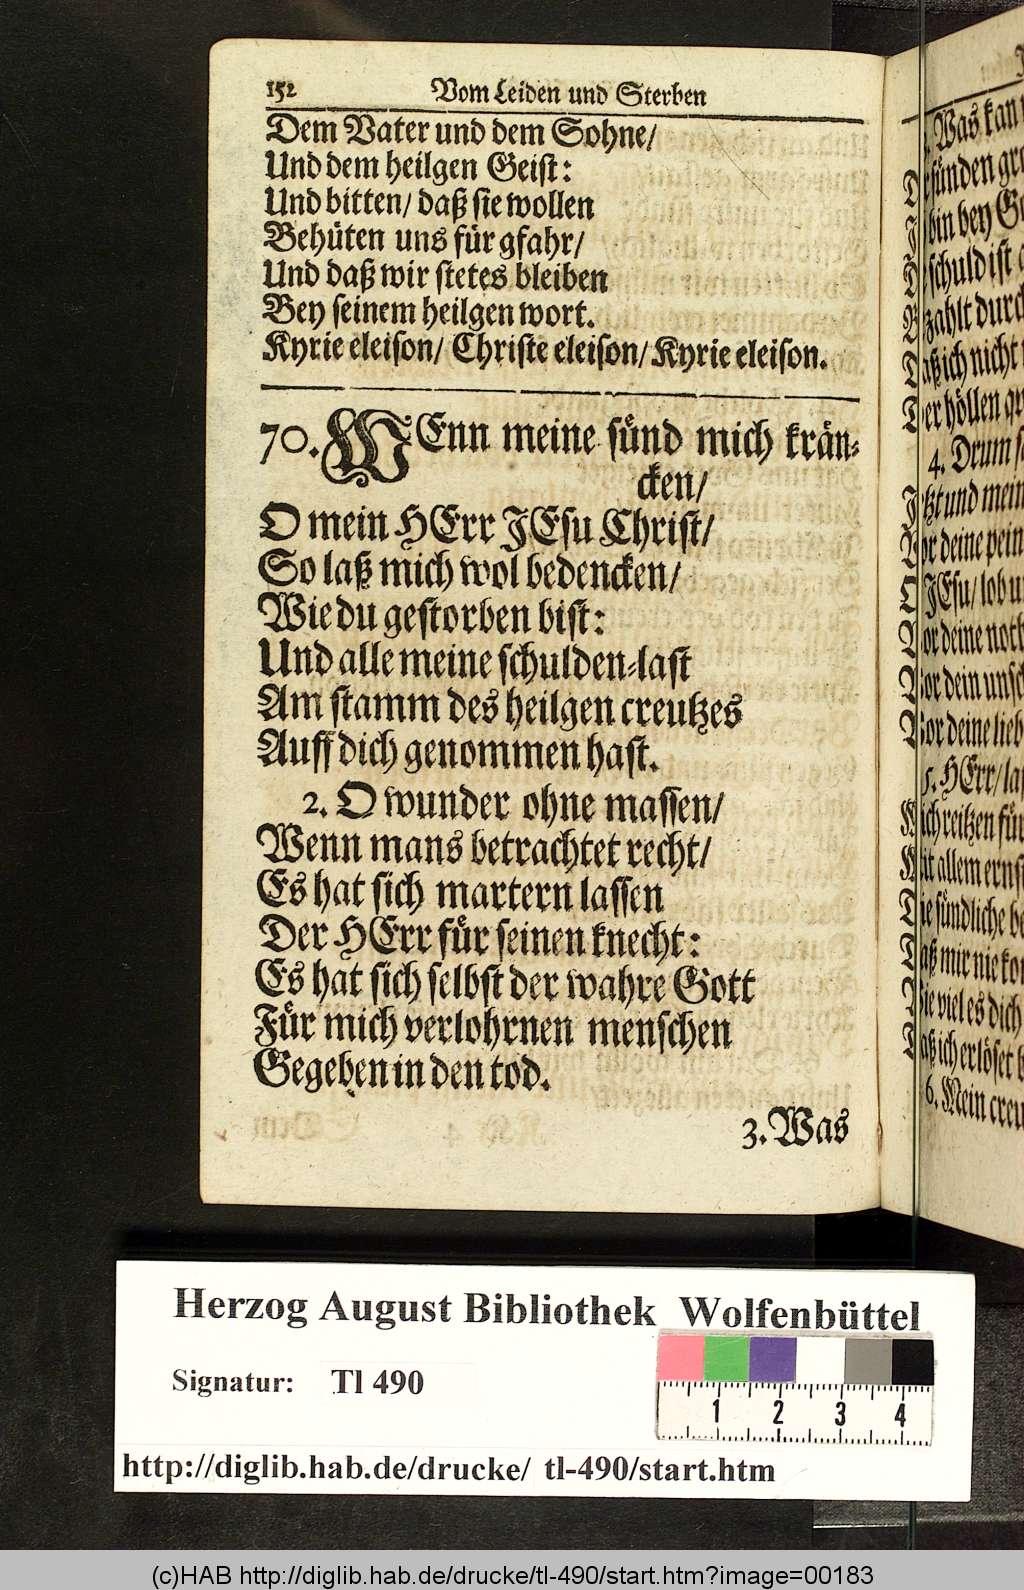 152
Vom Leiden und Sterben
Dem Vater und dem Sohne/
Und dem heilgen Geist:
Und bitten/ daß sie wollen
Behüten uns für gfahr/
Und daß wir stetes bleiben
Bey seinem heilgen wort.
Kyrie eleison/ Christe eleison/ Kyrie eleison.
70. WEnn meine sünd mich krän-
cken/
O mein HErr JEsu Christ/
So laß mich wol bedencken/
Wie du gestorben bist:
Und alle meine schulden-last
Am stamm des heilgen creutzes
Auff dich genommen hast.
2. O wunder ohne massen/
Wenn mans betrachtet recht/
Es hat sich martern lassen
Der HErr für seinen knecht:
Es hat sich selbst der wahre Gott
Für mich verlohrnen menschen
Gegeben in den tod.
3. Was
Was kan
sünden
bin bey
schuld ist
zahlt durch
ich nicht
höllen
4. Drum
und mein
deine
JEsu/ lob
deine
dein
deine
5. HErr/
reitzen für
allem
sündliche
mir nie
viel es dich
ich erlöset
6. Mein
Herzog August Bibliothek Wolfenbüttel
Signatur: Tl 490
1 2 3 4
http://diglib.hab.de/drucke/ tl-490/start.htm
(c)HAB http://diglib.hab.de/drucke/tl-490/start.htm?image=00183